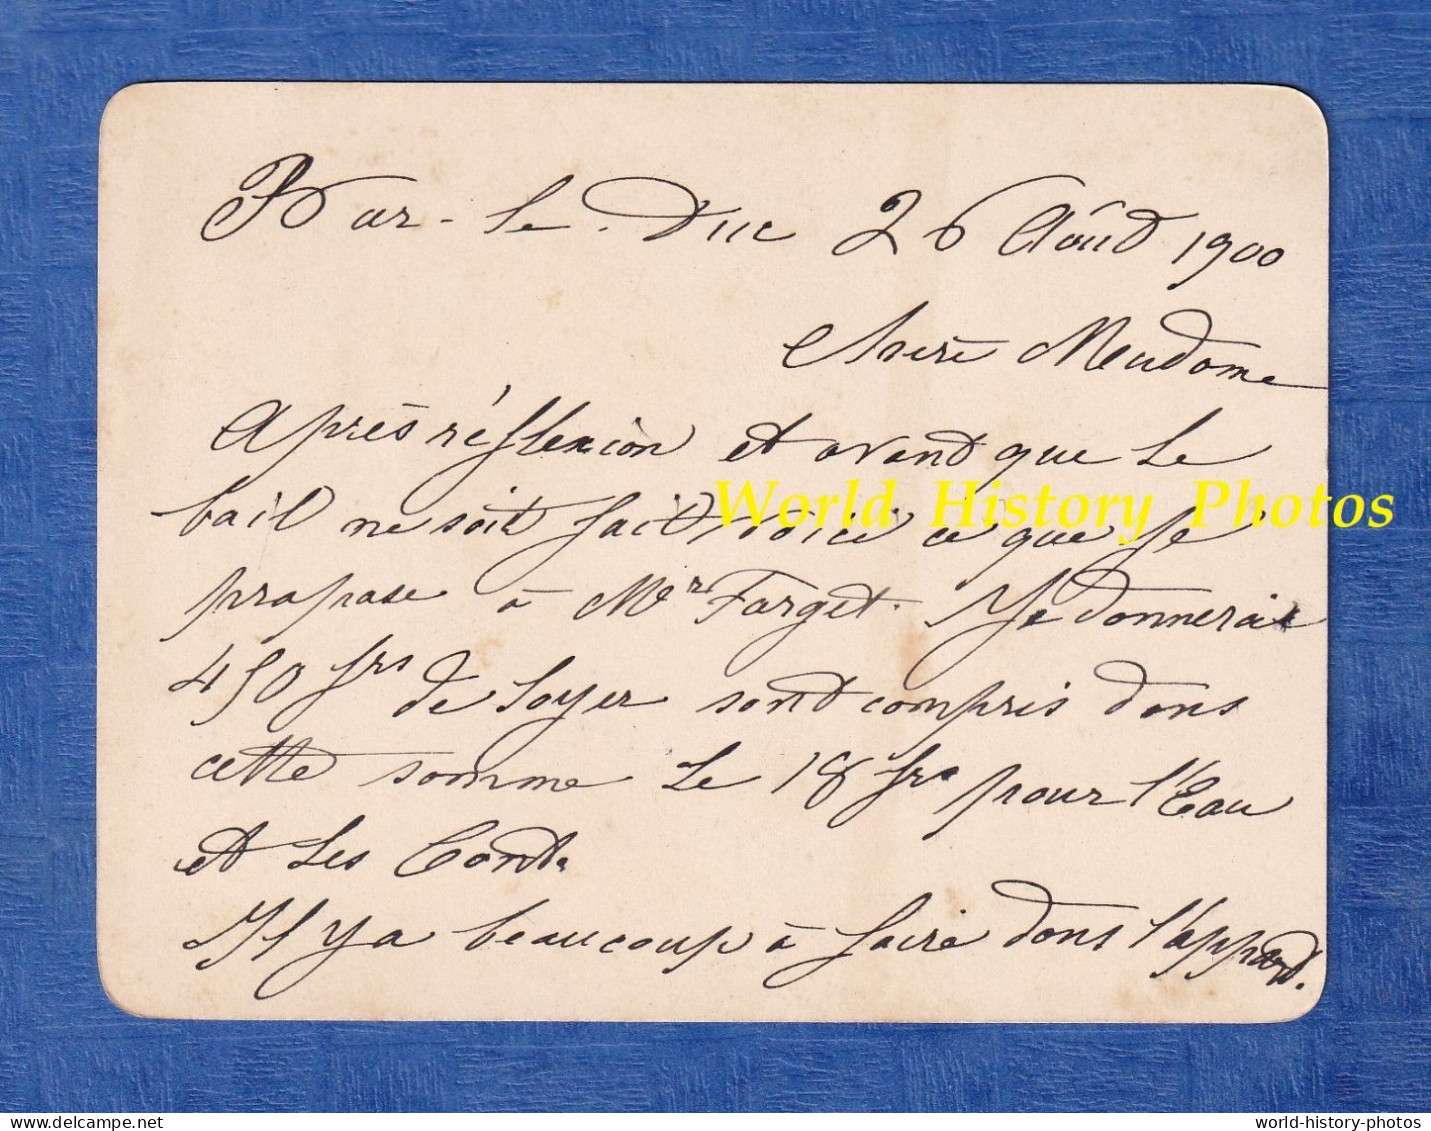 Bar-le-Duc 26 Août 1900
Chère Madame
Après réflexion et avant que le
bail ne soit fait, voici ce que je
propose à Mr Farget. Je donnerai
450 frs de loyer sont compris dans
cette somme le 18 frs pour l'Eau
et les Cont.
Il y a beaucoup à faire dans l'appard.
World History Photos
world-history-photos